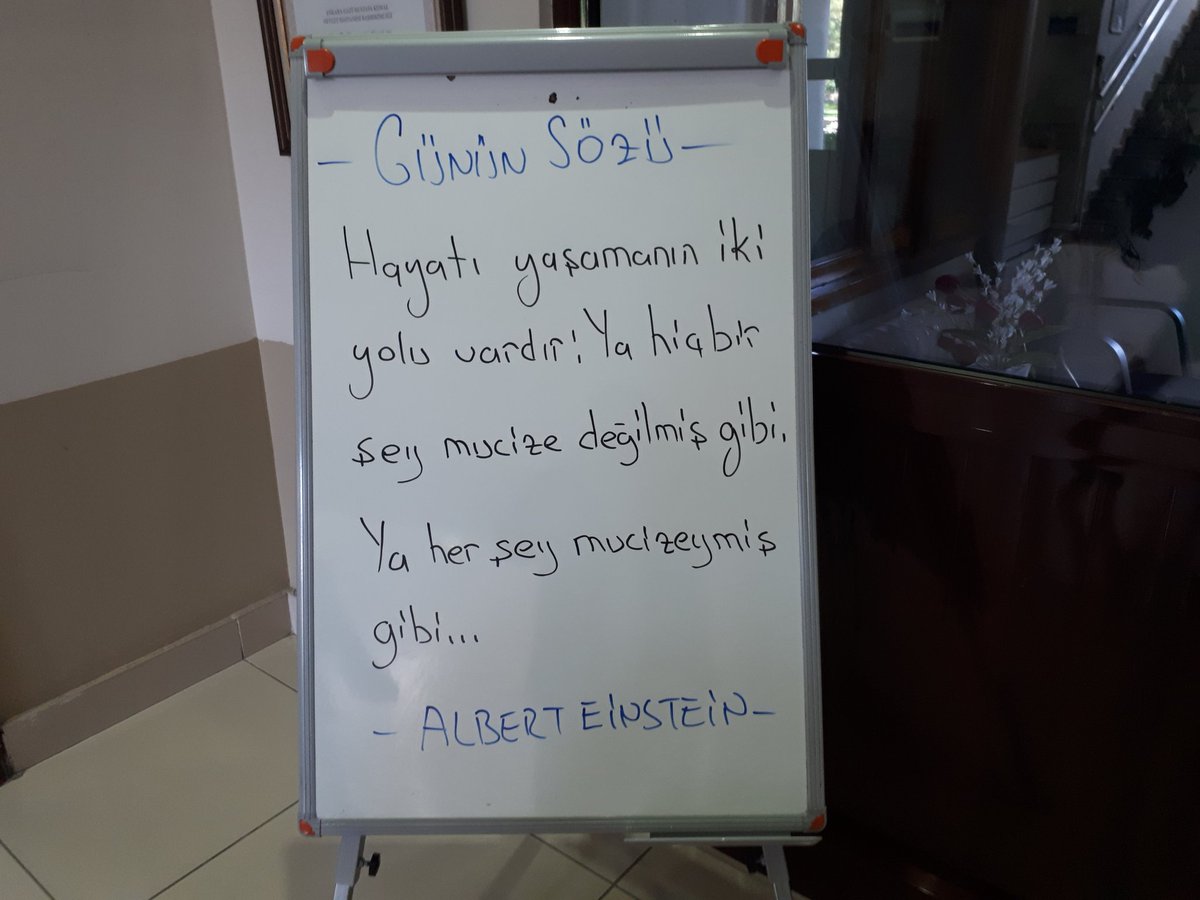 - GÜNÜN SÖZÜ -
Hayatı yaşamanın iki
yolu vardır! Ya hiçbir
şey mucize değilmiş gibi.
Ya her şey mucizeymiş
gibi...
- ALBERT EİNSTEİN -